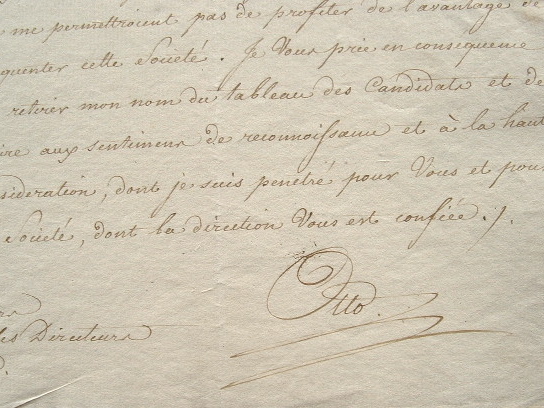 me permettroient pas de profiter de l'avantage de
quenter cette Société. Je Vous prie en consequence
retirer mon nom du tableau des Candidats et de
ire aux sentimens de reconnoissance et à la haut
sideration, dont je suis penetré pour Vous et pour
Société, dont la direction Vous est confiée ./.
Otto.
rs
les Directeurs